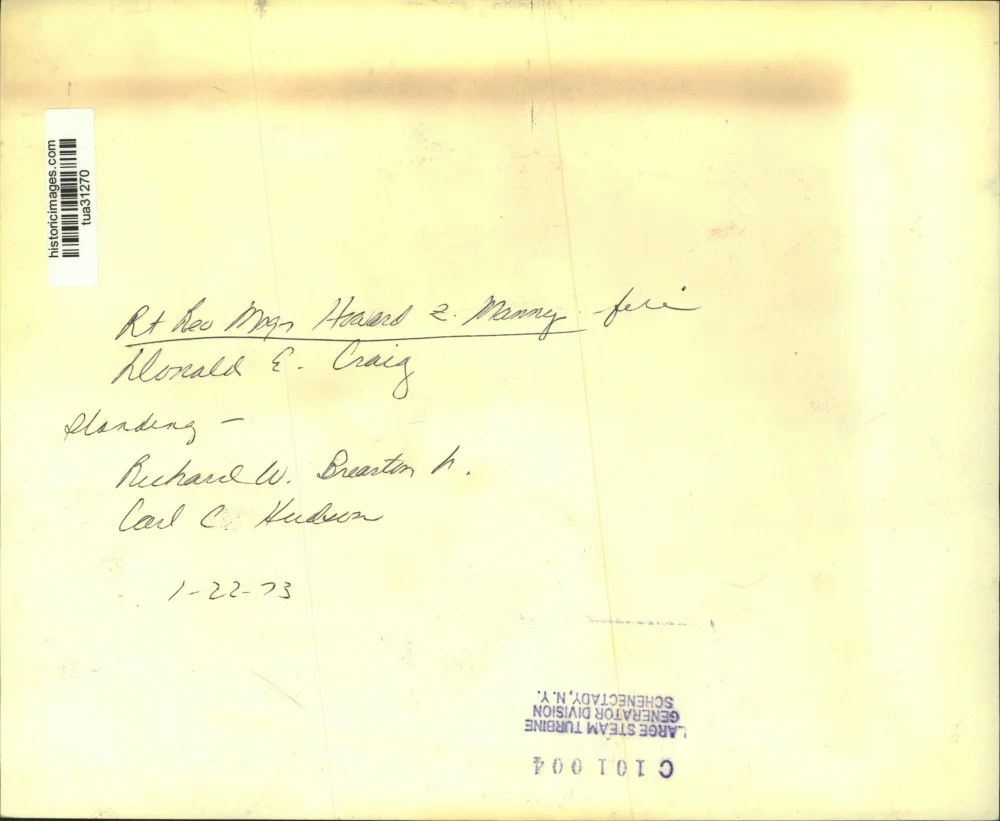 historicimages.com
tua31270
Rt Rev Msgr Howard Z. Manny - file
Donald E. Craig
Standing -
Richard W. Brearton Jr.
Carl C. Hudson
1-22-73
C 101 004
LARGE STEAM TURBINE
GENERATOR DIVISION
SCHENECTADY, N.Y.